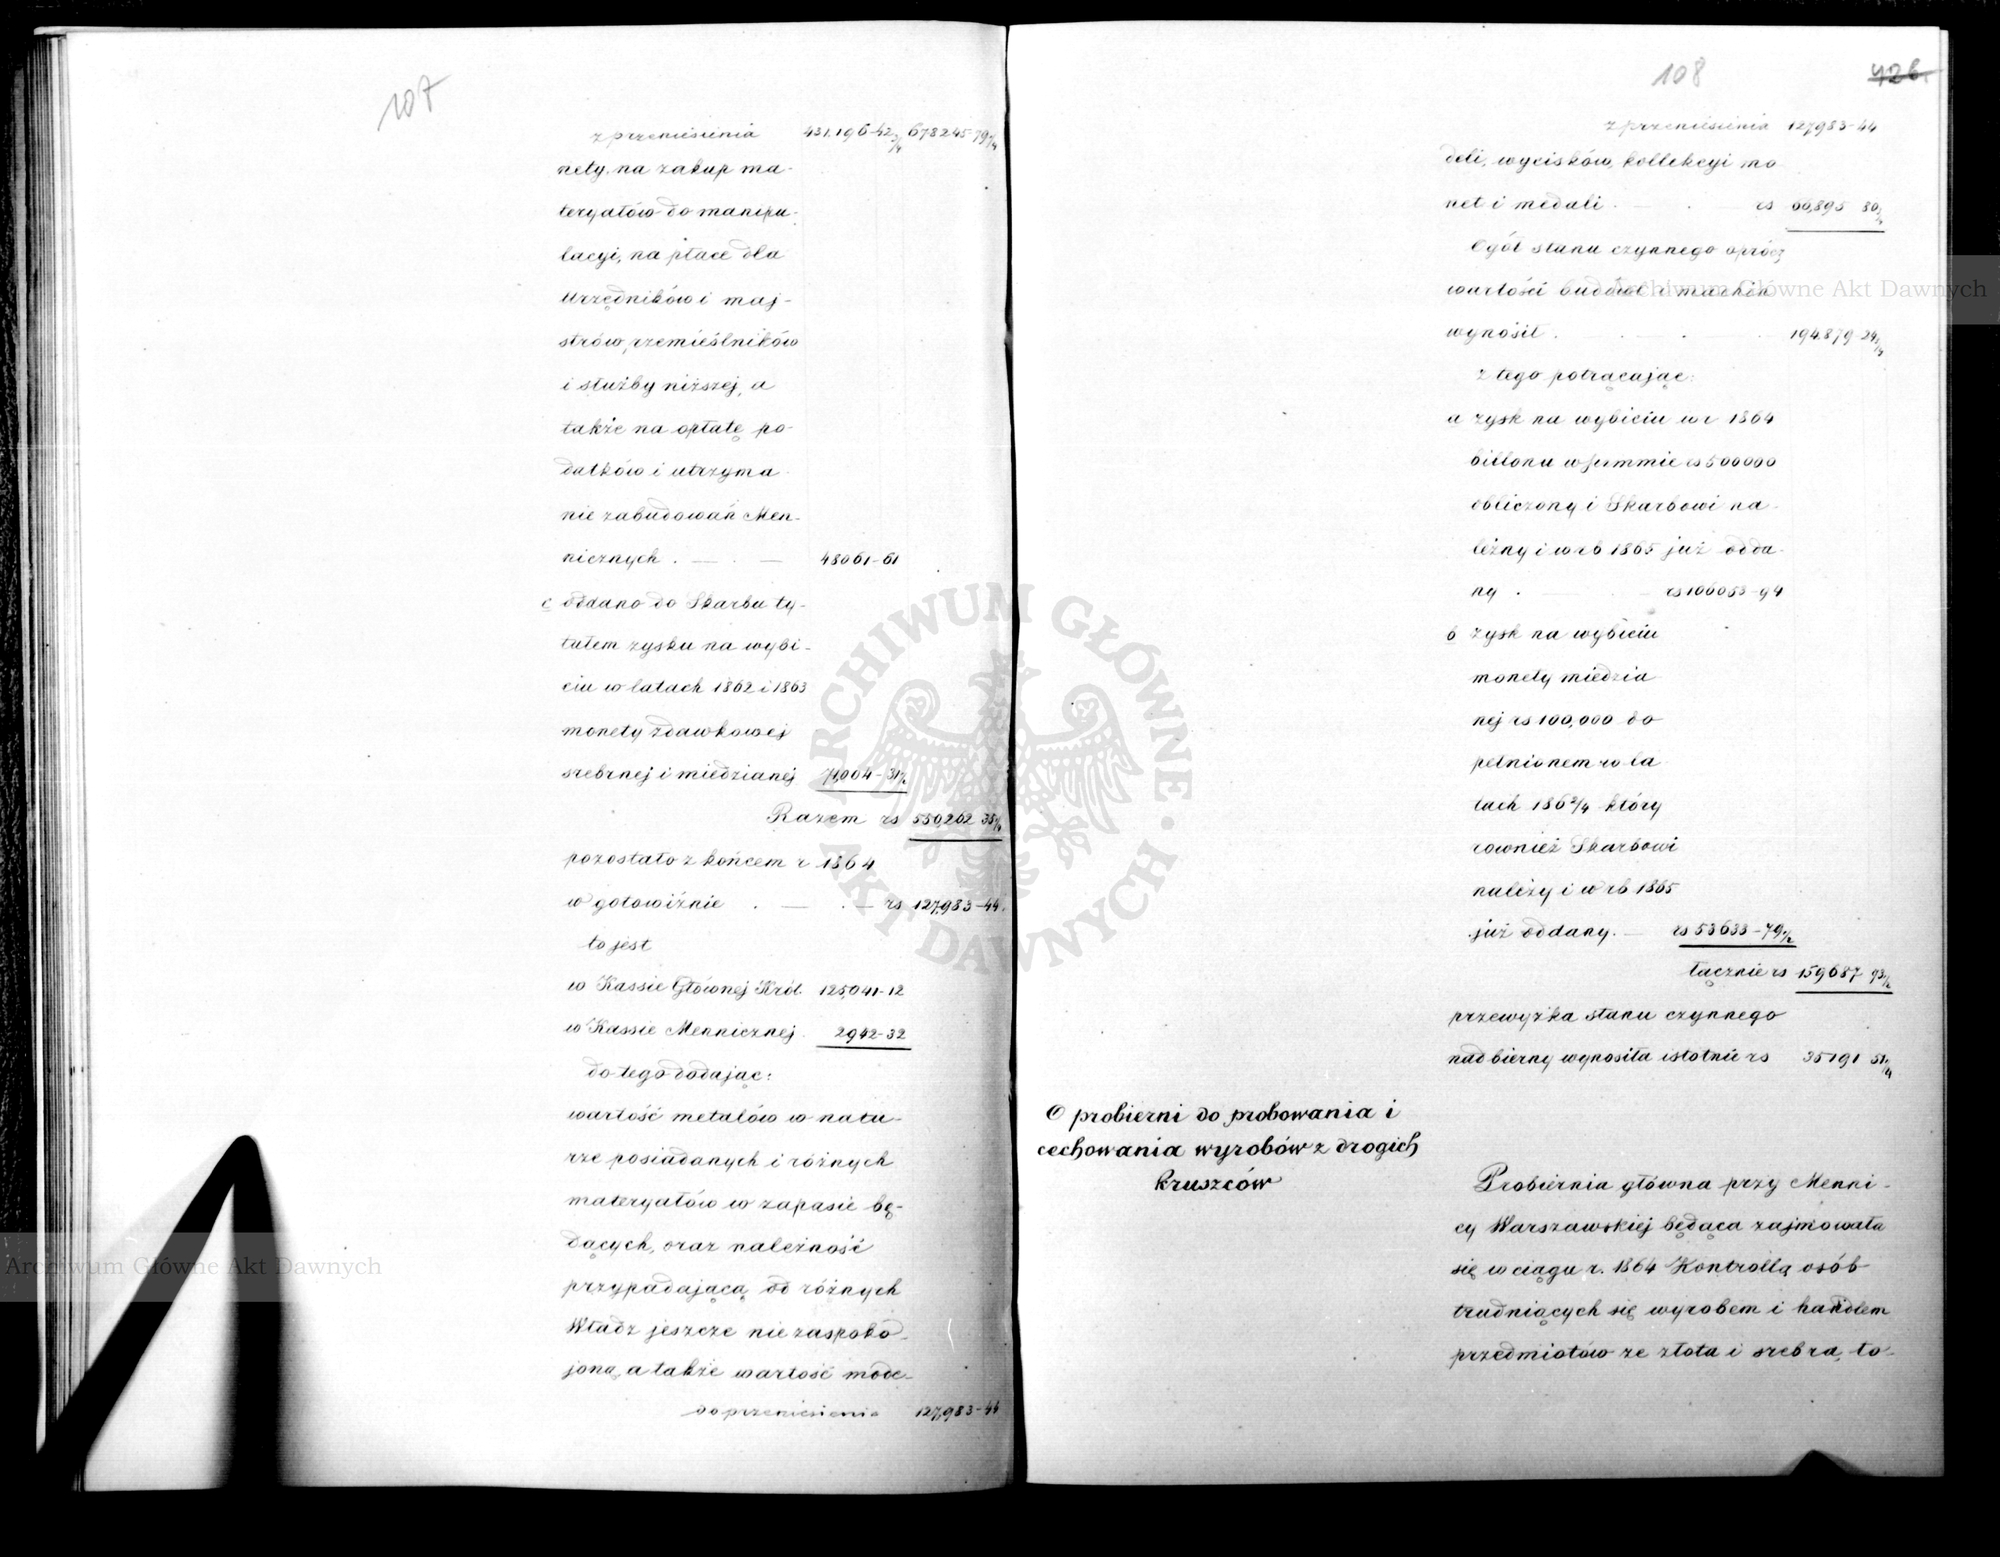 107
z przeniesienia 431.196-42 3/4 678245-79 3/4
nety, na zakup ma-
teryałów do manipu-
lacyi, na płace dla
urzędników i maj-
strów, rzemieślników
i służby niższej, a
także na opłatę po-
datków i utrzyma-
nie zabudowań Men-
nicznych . — . — 48061-61
c oddano do Skarbu ty-
tułem zysku na wybi-
ciu w latach 1862 i 1863
monety zdawkowej
srebrnej i miedzianej 71,004-31 1/2
Razem rs 550,262 35 1/4
pozostało z końcem r 1864
w gotowiźnie . — . — rs 127,983-44.
to jest
w Kassie Głównej Król. 125,041-12
w Kassie Mennicznej. 2942-32
do tego dodając:
wartość metalów w natu-
rze posiadanych i różnych
materyałów w zapasie bę-
dących, oraz należność
przypadającą od różnych
Władz jeszcze nie zaspoko-
joną, a także wartość mode-
do przeniesienia 127,983-44
108
42b.
z przeniesienia 127,983-44
deli, wycisków, kollekcyi mo
net i medali . — . — rs 66,895 80 1/4
Ogół stanu czynnego oprócz
wartości budowl i machin
wynosił . — . — 194.879-24 1/4
z tego potrącając:
a zysk na wybiciu w r 1864
billonu w summie rs 500000
obliczony i Skarbowi na-
leżny i w rb 1865 już odda-
ny . — rs 106053-94
b zysk na wybiciu
monety miedzia
nej rs 100,000 do
pełnionem w la
tach 186 2/4 który
rownież Skarbowi
należy i w rb 1865
już oddany. — rs 53633-79 1/2
łącznie rs 159687 73 1/2
przewyżka stanu czynnego
nad bierny wynosiła istotnie rs 35191 51 1/4
O probierni do probowania i
cechowania wyrobów z drogich
kruszców
Probiernia główna przy Menni-
cy Warszawskiej będąca zajmowała
się w ciągu r. 1864 Kontrollą osób
trudniących się wyrobem i handlem
przedmiotów ze złota i srebra, to-
Archiwum Główne Akt Dawnych
Archiwum Główne Akt Dawnych
ARCHIWUM GŁÓWNE AKT DAWNYCH